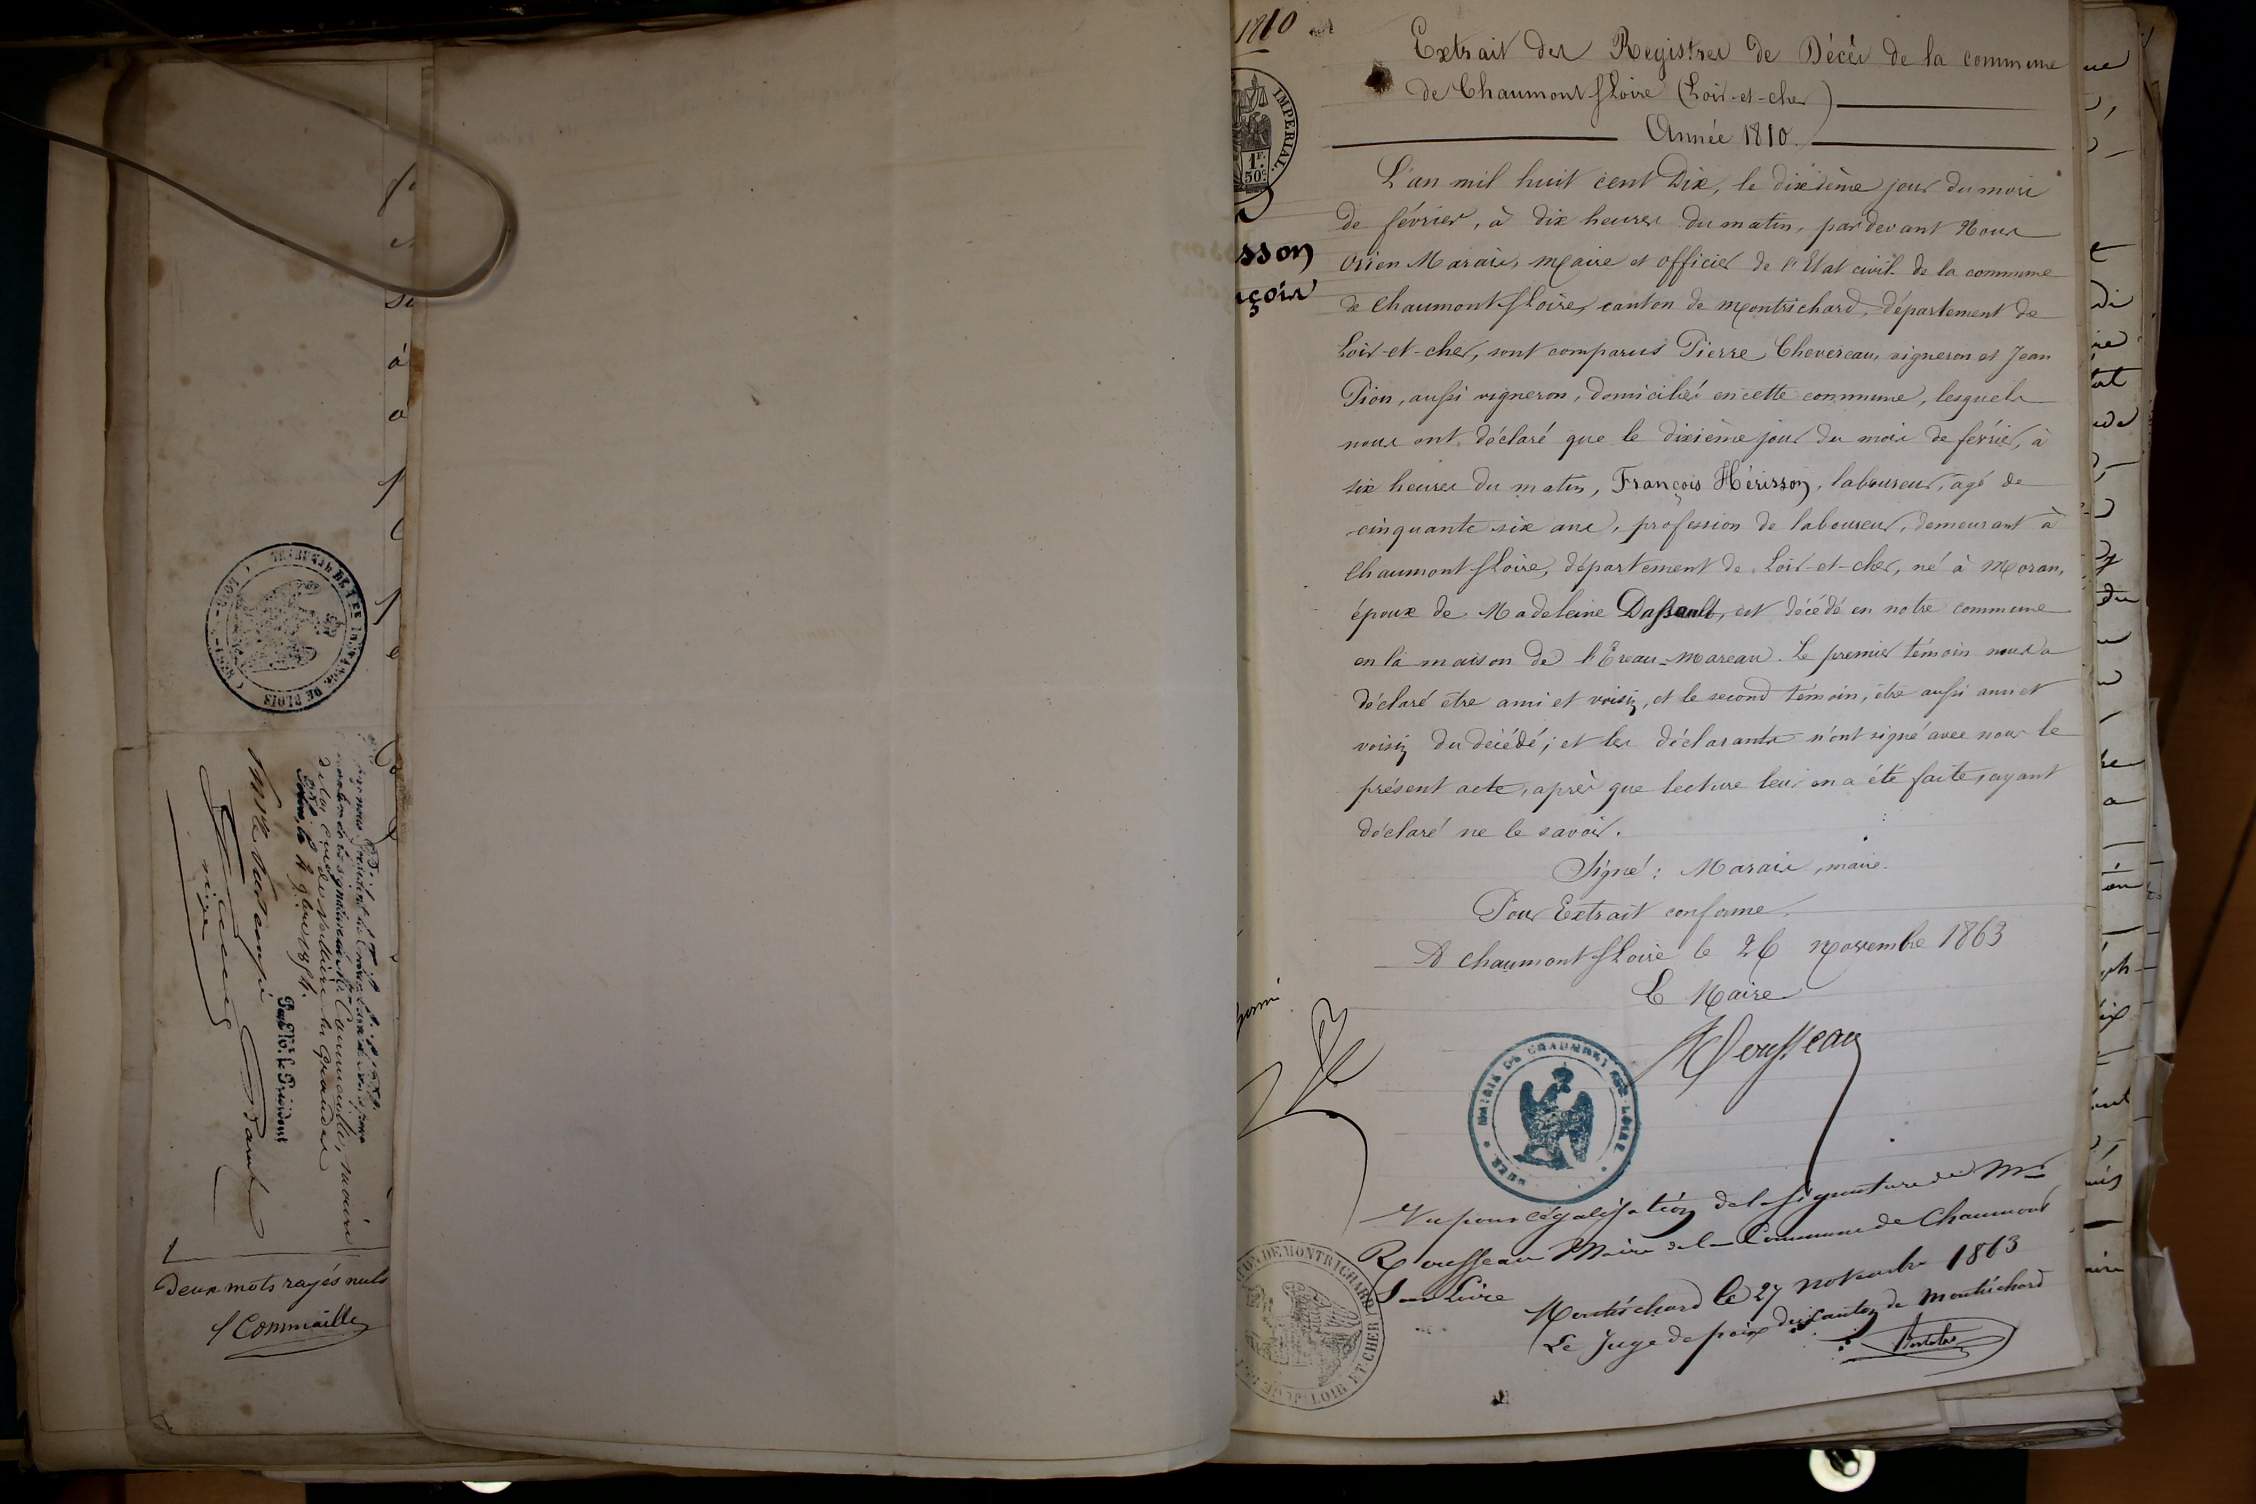 1810
Extrait des Registres de Décès de la commune
de Chaumont s/Loire (Loir-et-cher)
Année 1810.
IMPERIAL.
1F.
50c.
sson
çois
L'an mil huit cent Dix, le dixième jour du mois
de février, à dix heures du matin, pardevant Nous
Marais, Maire et officier de l'Etat civil de la commune
de Chaumont s/Loire, canton de Montrichard, département de
Loir-et-cher, sont comparus Pierre Chevereau, vigneron et Jean
Pion, aussi vigneron, domiciliés en cette commune, lesquels
nous ont déclaré que le dixième jour du mois de février, à
six heures du matin, François Hérisson, laboureur, agé de
cinquante six ans, profession de laboureur, demeurant à
Chaumont s/Loire, département de Loir-et-cher, né à Moran,
époux de Madeleine Dassault, est décédé en notre commune
en la maison de Le premier témoin nous a
déclaré être ami et voisin, et le second témoin, être aussi ami et
voisin du décédé; et les déclarants n'ont signé avec nous le
présent acte, après que lecture leur en a été faite, ayant
déclaré ne le savoir.
Signé: Marais, maire.
Pour Extrait conforme.
A Chaumont s/Loire le 26 Novembre 1863
Le Maire
Rousseau
MAIRIE DE CHAUMONT SUR LOIRE
CHER
Vu pour légalisation de la signature de Mr
Rousseau Maire de la Commune de Chaumont
Sur Loire
Montrichard le 27 novembre 1863
Le Juge de paix du canton de Montrichard
DE MONTRICHARD
LOIR ET CHER
TRIBUNAL DE 1ERE INSTANCE DE BLOIS
Pour le Président
Deux mots rayés nuls
Commaille